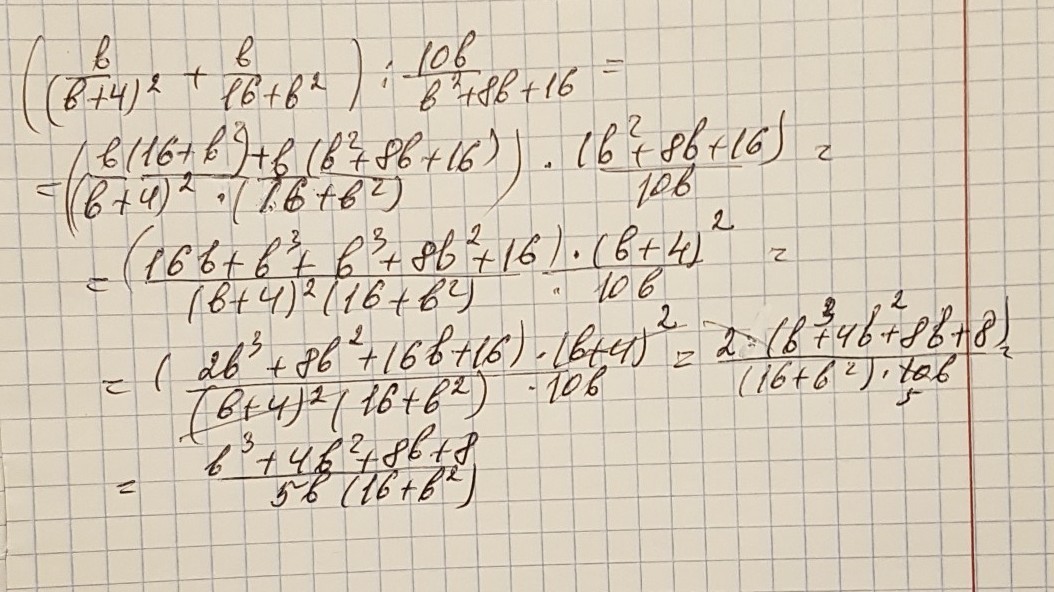 (b/(b+4)² + b/(16+b²)) : 10b/(b²+8b+16) =
= ((b(16+b²)+b(b²+8b+16))/((b+4)²·(16+b²))) · (b²+8b+16)/10b =
= (16b+b³+b³+8b²+16)·(b+4)²/((b+4)²(16+b²)·10b) =
= (2b³+8b²+16b+16)·(b+4)²/((b+4)²(16+b²)·10b) = 2·(b³+4b²+8b+8)/((16+b²)·10b) =
5
= (b³+4b²+8b+8)/(5b(16+b²))